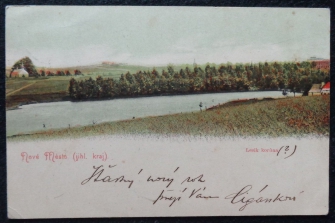 Nové Město (jihl. kraj)
Lesík bevlina (?)
Šťastný nový rok
přejí Vám Cigánkovi